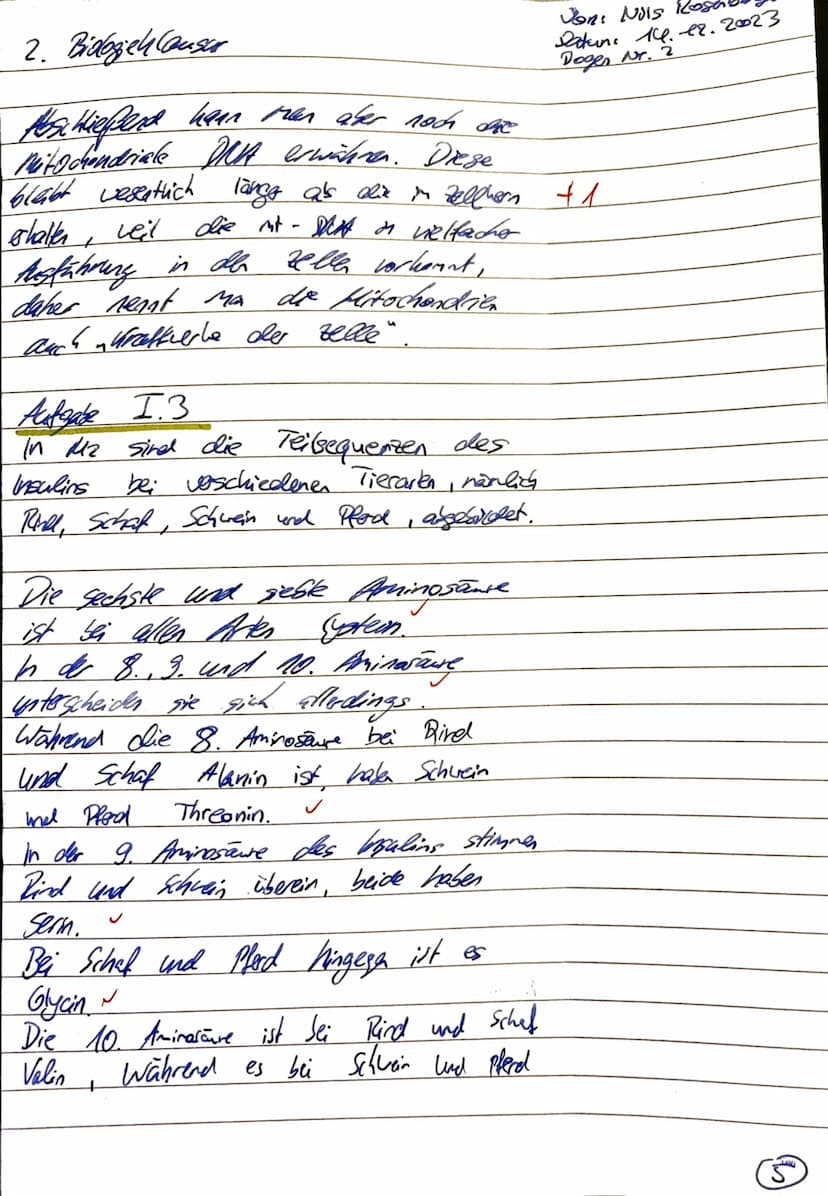 Von: Nils
Datum: 14.12.2023
Bogen Nr. 2
2. Biologieklausur
Abschließend kann man aber noch die
Mitochondriale DNA erwähnen. Diese
bleibt wesentlich länger als die im Zellkern +1
erhalten, weil die mt-DNA in vielfacher
Ausführung in den Zellen vorkommt,
daher nennt man die Mitochondrien
auch „Kraftwerke der Zelle“.
Aufgabe I.3
In M2 sind die Teilsequenzen des
Insulins bei verschiedenen Tierarten, nämlich
Rind, Schaf, Schwein und Pferd, abgebildet.
Die sechste und siebte Aminosäure
ist bei allen Arten Cystein. ✓
In der 8., 9. und 10. Aminosäure
unterscheiden sie sich allerdings. ✓
Während die 8. Aminosäure bei Rind
und Schaf Alanin ist, haben Schwein
und Pferd Threonin. ✓
In der 9. Aminosäure des Insulins stimmen
Rind und Schwein überein, beide haben
Serin. ✓
Bei Schaf und Pferd hingegen ist es
Glycin. ✓
Die 10. Aminosäure ist bei Rind und Schaf
Valin, Während es bei Schwein und Pferd
5